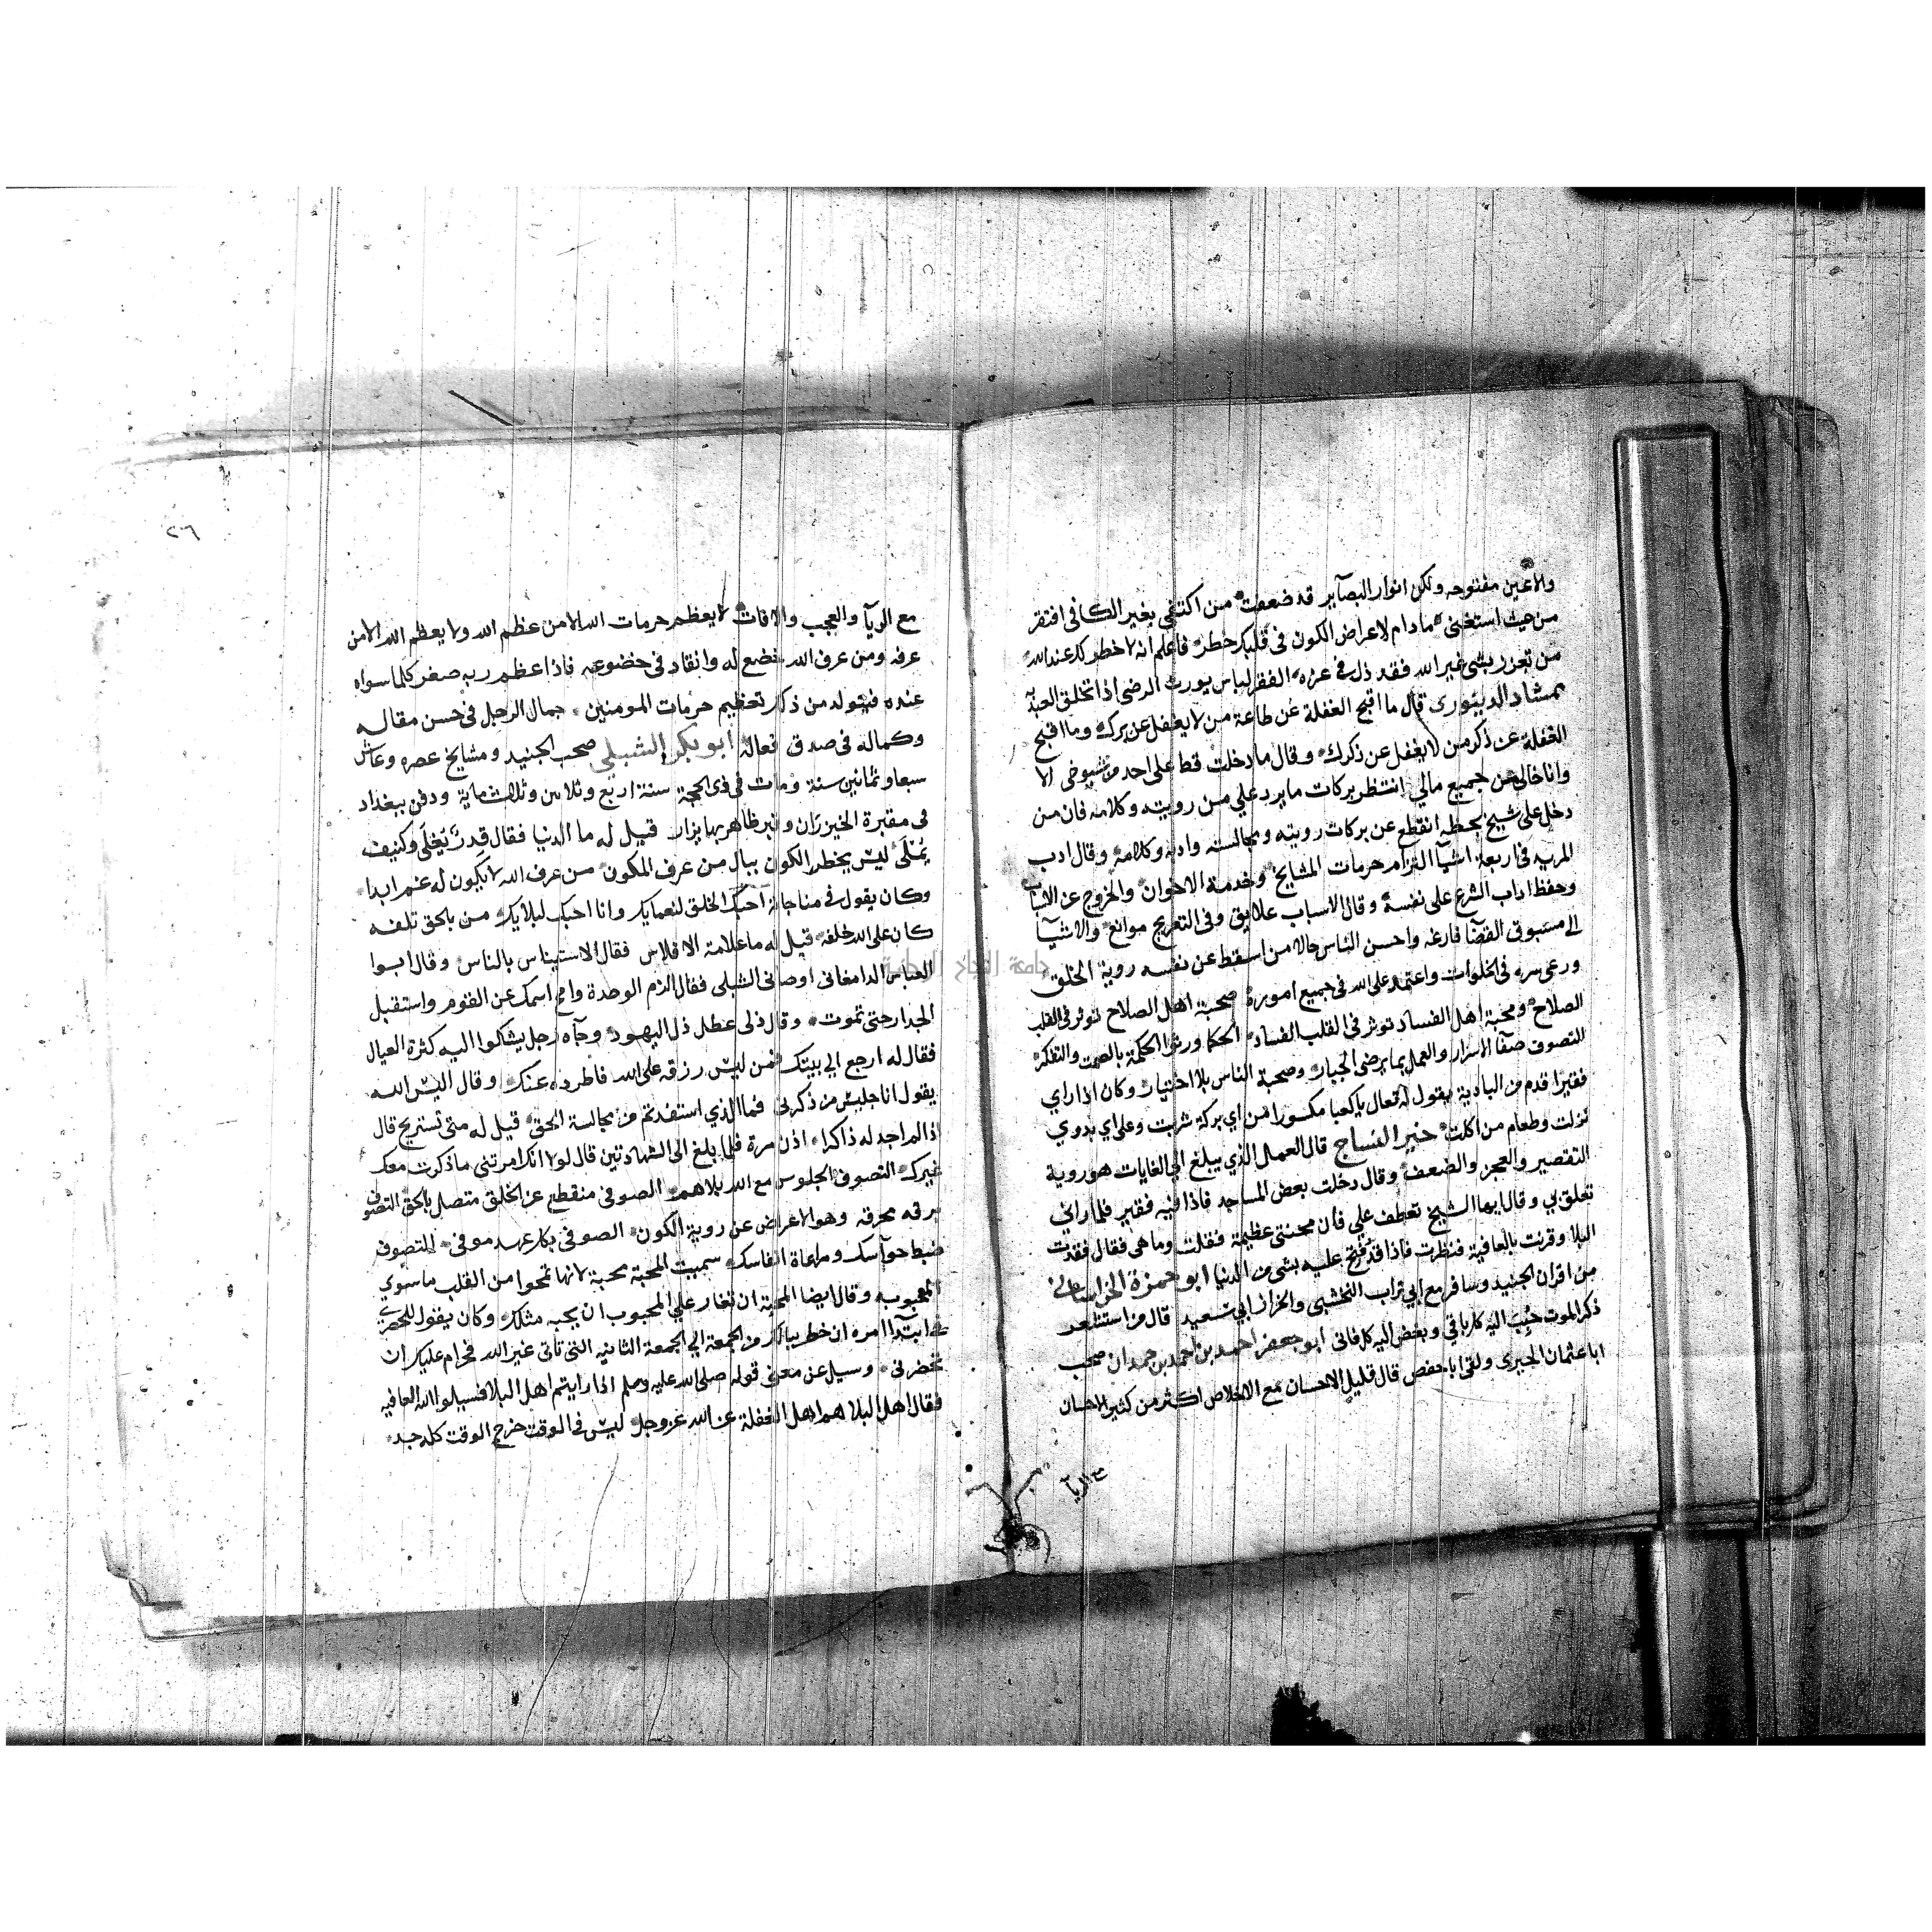 والاعين مفتوحه ولكن انوار البصآير قد ضعفت من اكتفي بغير الكافى افتقر
من حيث استغنى مادام لاعراض الكون فى قلبك خطر فاعلم انه لا خطر لك عند الله
من تعزز بشى غير الله فقد ذل في عزه الفقر لباس يورث الرضى اذا تحلق العبد به
ممشاد الدينورى قال ما اقبح الغفلة عن طاعة من لا يغفل عن برك وما اقبح
الغفلة عن ذكر من لا يغفل عن ذكرك وقال ما دخلت قط على احد من شيوخى الا
وانا خالى عن جميع مالي انتظر بركات ما يرد علي من رويته وكلامه فان من
دخل على شيخ بحظه انقطع عن بركات رويته ومجالسته وادبه وكلامه وقال ادب
المريد فى اربعة اشيآ التزام حرمات المشايخ وخدمة الاخوان والخروج عن الاسباب
وحفظ اداب الشرع على نفسه وقال الاسباب علايق وفى التعريج موانع والاشيآ
الى مسبوق القضآ فارغه واحسن الناس حالا من اسقط عن نفسه روية الخلق
ورعى سره فى الخلوات واعتمد على الله فى جميع اموره صحبة اهل الصلاح توثر فى القلب
الصلاح وصحبة اهل الفساد توثر فى القلب الفساد الحكما ورثوا الحكمة بالصمت والتفكر
التصوف صفآ الاسرار والعمل بما يرضى الجبار وصحبة الناس بلا اختيار وكان اذا راي
فقيرا قدم من البادية يقول له تعال ياكعبا مكسورا من اي بركة شربت وعلى اي بدوي
نزلت وطعام من اكلت خير النساج قال العمل الذي يبلغ الى الغايات هو روية
التقصير والعجز والضعف وقال دخلت بعض المساجد فاذا فيه فقير فلما رانى
تعلق بي وقال ايها الشيخ تعطف علي فان محنتى عظيمة فقلت وما هى فقال فقدت
البلا وقرنت بالعافية فنظرت فاذا قد فتح عليه بشى من الدنيا ابو حمزة الخراسانى
من اقران الجنيد وسافر مع ابي تراب النخشبى والخراز ابي سعيد قال من استشعر
ذكر الموت حبب اليه كل باقي وبغض اليه كل فانى ابو جعفر احمد بن حمدان صحب
ابا عثمان الحيرى ولقى ابا حفص قال قليل الاحسان مع الاخلاص اكثر من كثير الاحسان
مع الريآ
٢٠٦
مع الريآ والعجب والافات لا يعظم حرمات الله الا من عظم الله ولا يعظم الله الا من
عرفه ومن عرف الله خضع له وانقاد فى خضوعه فاذا عظم ربه صغر كلما سواه
عنده فيتولد من ذكر تعظيم حرمات المومنين جمال الرجل فى حسن مقاله
وكماله فى صدق فعاله ابو بكر الشبلي صحب الجنيد ومشايخ عصره وعاش
سبعا وثمانين سنة ومات فى ذى الحجة سنة اربع وثلاثين وثلاث ماية ودفن ببغداد
فى مقبرة الخيزران وقبر ظاهر بها يزار قيل له ما الدنيا فقال قدر تغلى وكنيف
يملى ليس يخطر الكون ببال من عرف المكون من عرف الله لا يكون له غم ابدا
وكان يقول في مناجاته احبك الخلق لنعمايك وانا احبك لبلايك من بالحق تلفه
كان على الله خلفه قيل له ما علامة الافلاس فقال الاستيناس بالناس وقال ابوا
العباس الدامغانى اوصانى الشبلى فقال الزم الوحدة وامح اسمك عن القوم واستقبل
الجدار حتى تموت وقال ذلى عطل ذل اليهود وجآه رجل يشكوا اليه كثرة العيال
فقال له ارجع الي بيتك فمن ليس رزقه على الله فاطرده عنك وقال اليس الله
يقول انا جليس من ذكرنى فما الذي استفدتم من مجالسة الحق قيل له متى تستريح قال
اذا لم اجد له ذاكرا اذن مرة فلما بلغ الى الشهادتين قال لولا انك امرتنى ما ذكرت معك
غيرك التصوف الجلوس مع الله بلا هم الصوفى منقطع عن الخلق متصل بالحق التصوف
برقه محرقه وهو الاعراض عن روية الكون الصوفى بكل عهد موفى التصوف
ضبط حوآسك ومراعاة انفاسك سميت المحبة محبة لانها تمحوا من القلب ما سوي
المحبوب وقال ايضا المحبة ان تغار علي المحبوب ان يحبه مثلك وكان يقول للحصري
في ابتدآ امره ان خطر ببالك من الجمعة الى الجمعة الثانيه التى تاتى غير الله فحرام عليك ان
تحضرنى وسيل عن معنى قوله صلى الله عليه وسلم اذا رايتم اهل البلا فسيلوا الله العافيه
فقال اهل البلا هم اهل الغفلة عن الله عز وجل ليس فى الوقت خرج الوقت كله جد